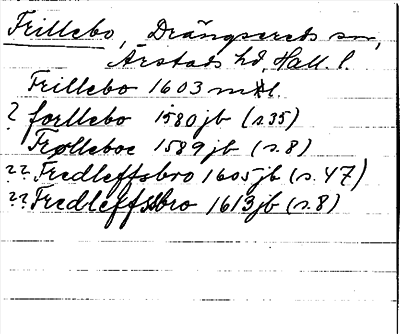 Frillebo, Drängsereds sn,
Årstads hd, Hall. l.
Frillebo 1603 mtl.
? forllebo 1580 jb (s. 35)
Frølleboe 1589 jb (s. 8)
?? Fredleffsbro 1605 jb (s. 47)
?? Fredleffsbro 1613 jb (s. 8)